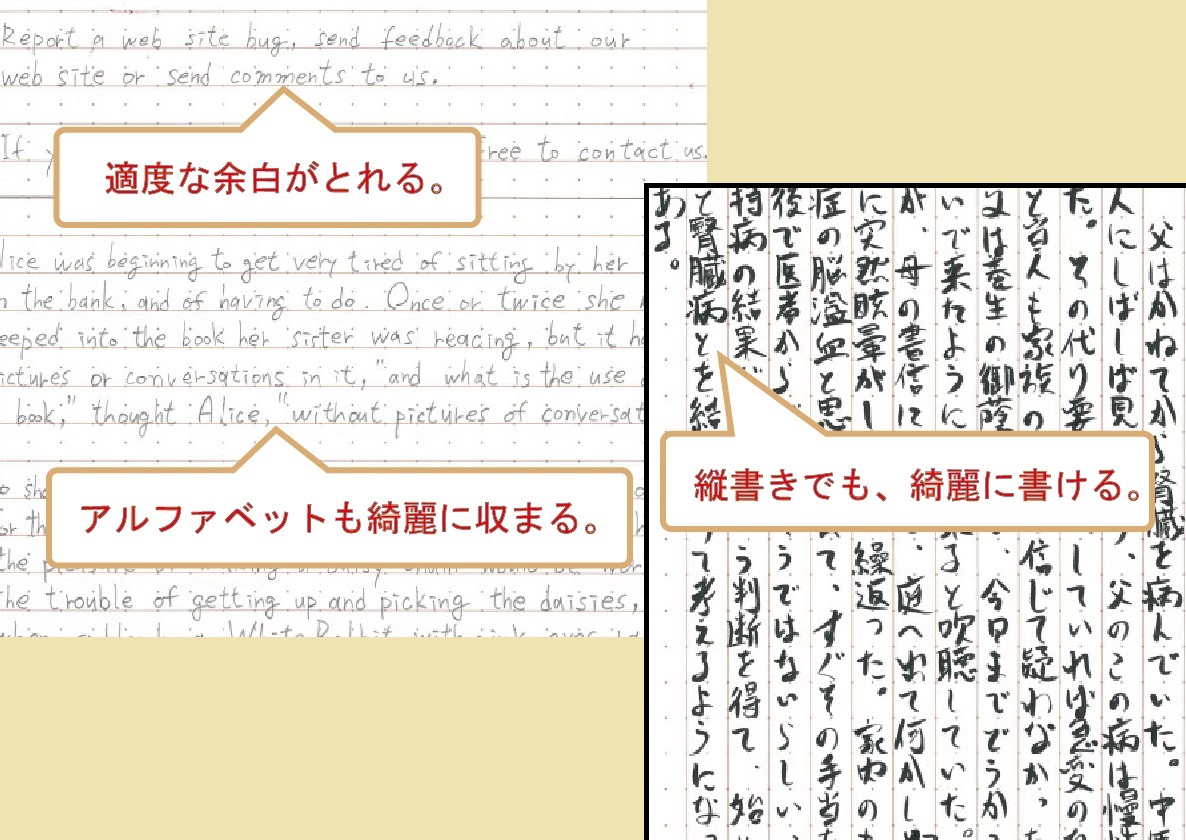 Report a web site bug, send feedback about our
web site or send comments to us.
適度な余白がとれる。
If
free to contact us.
lice was beginning to get very tired of sitting by her
the bank, and of having to do. Once or twice she
eeped into the book her sister was reading, but it
ictures or conversations in it, "and what is the use
book," thought Alice, "without pictures of conversat
アルファベットも綺麗に収まる。
or th
the
he trouble of getting up and picking the daisies,
White Rabbit with
縦書きでも、綺麗に書ける。
父はかねてか
腎臓を病んでいた。中
人にしばしば見
、父のこの病は慢性
た。その代り要
していれば急変の
と当人も家族の
信じて疑わなかっ
父は養生の御蔭
、今日までどうか
いで来たように
ると吹聴していた。
が、母の書信に
、庭へ出て何かし
に突然眩暈がし
繰返った。家内の
症の脳溢血と思
て、すぐその手当
後で医者から
うではないらしい
持病の結果
う判断を得て、始
と腎臓病とを結
て考えるようにな
ある。